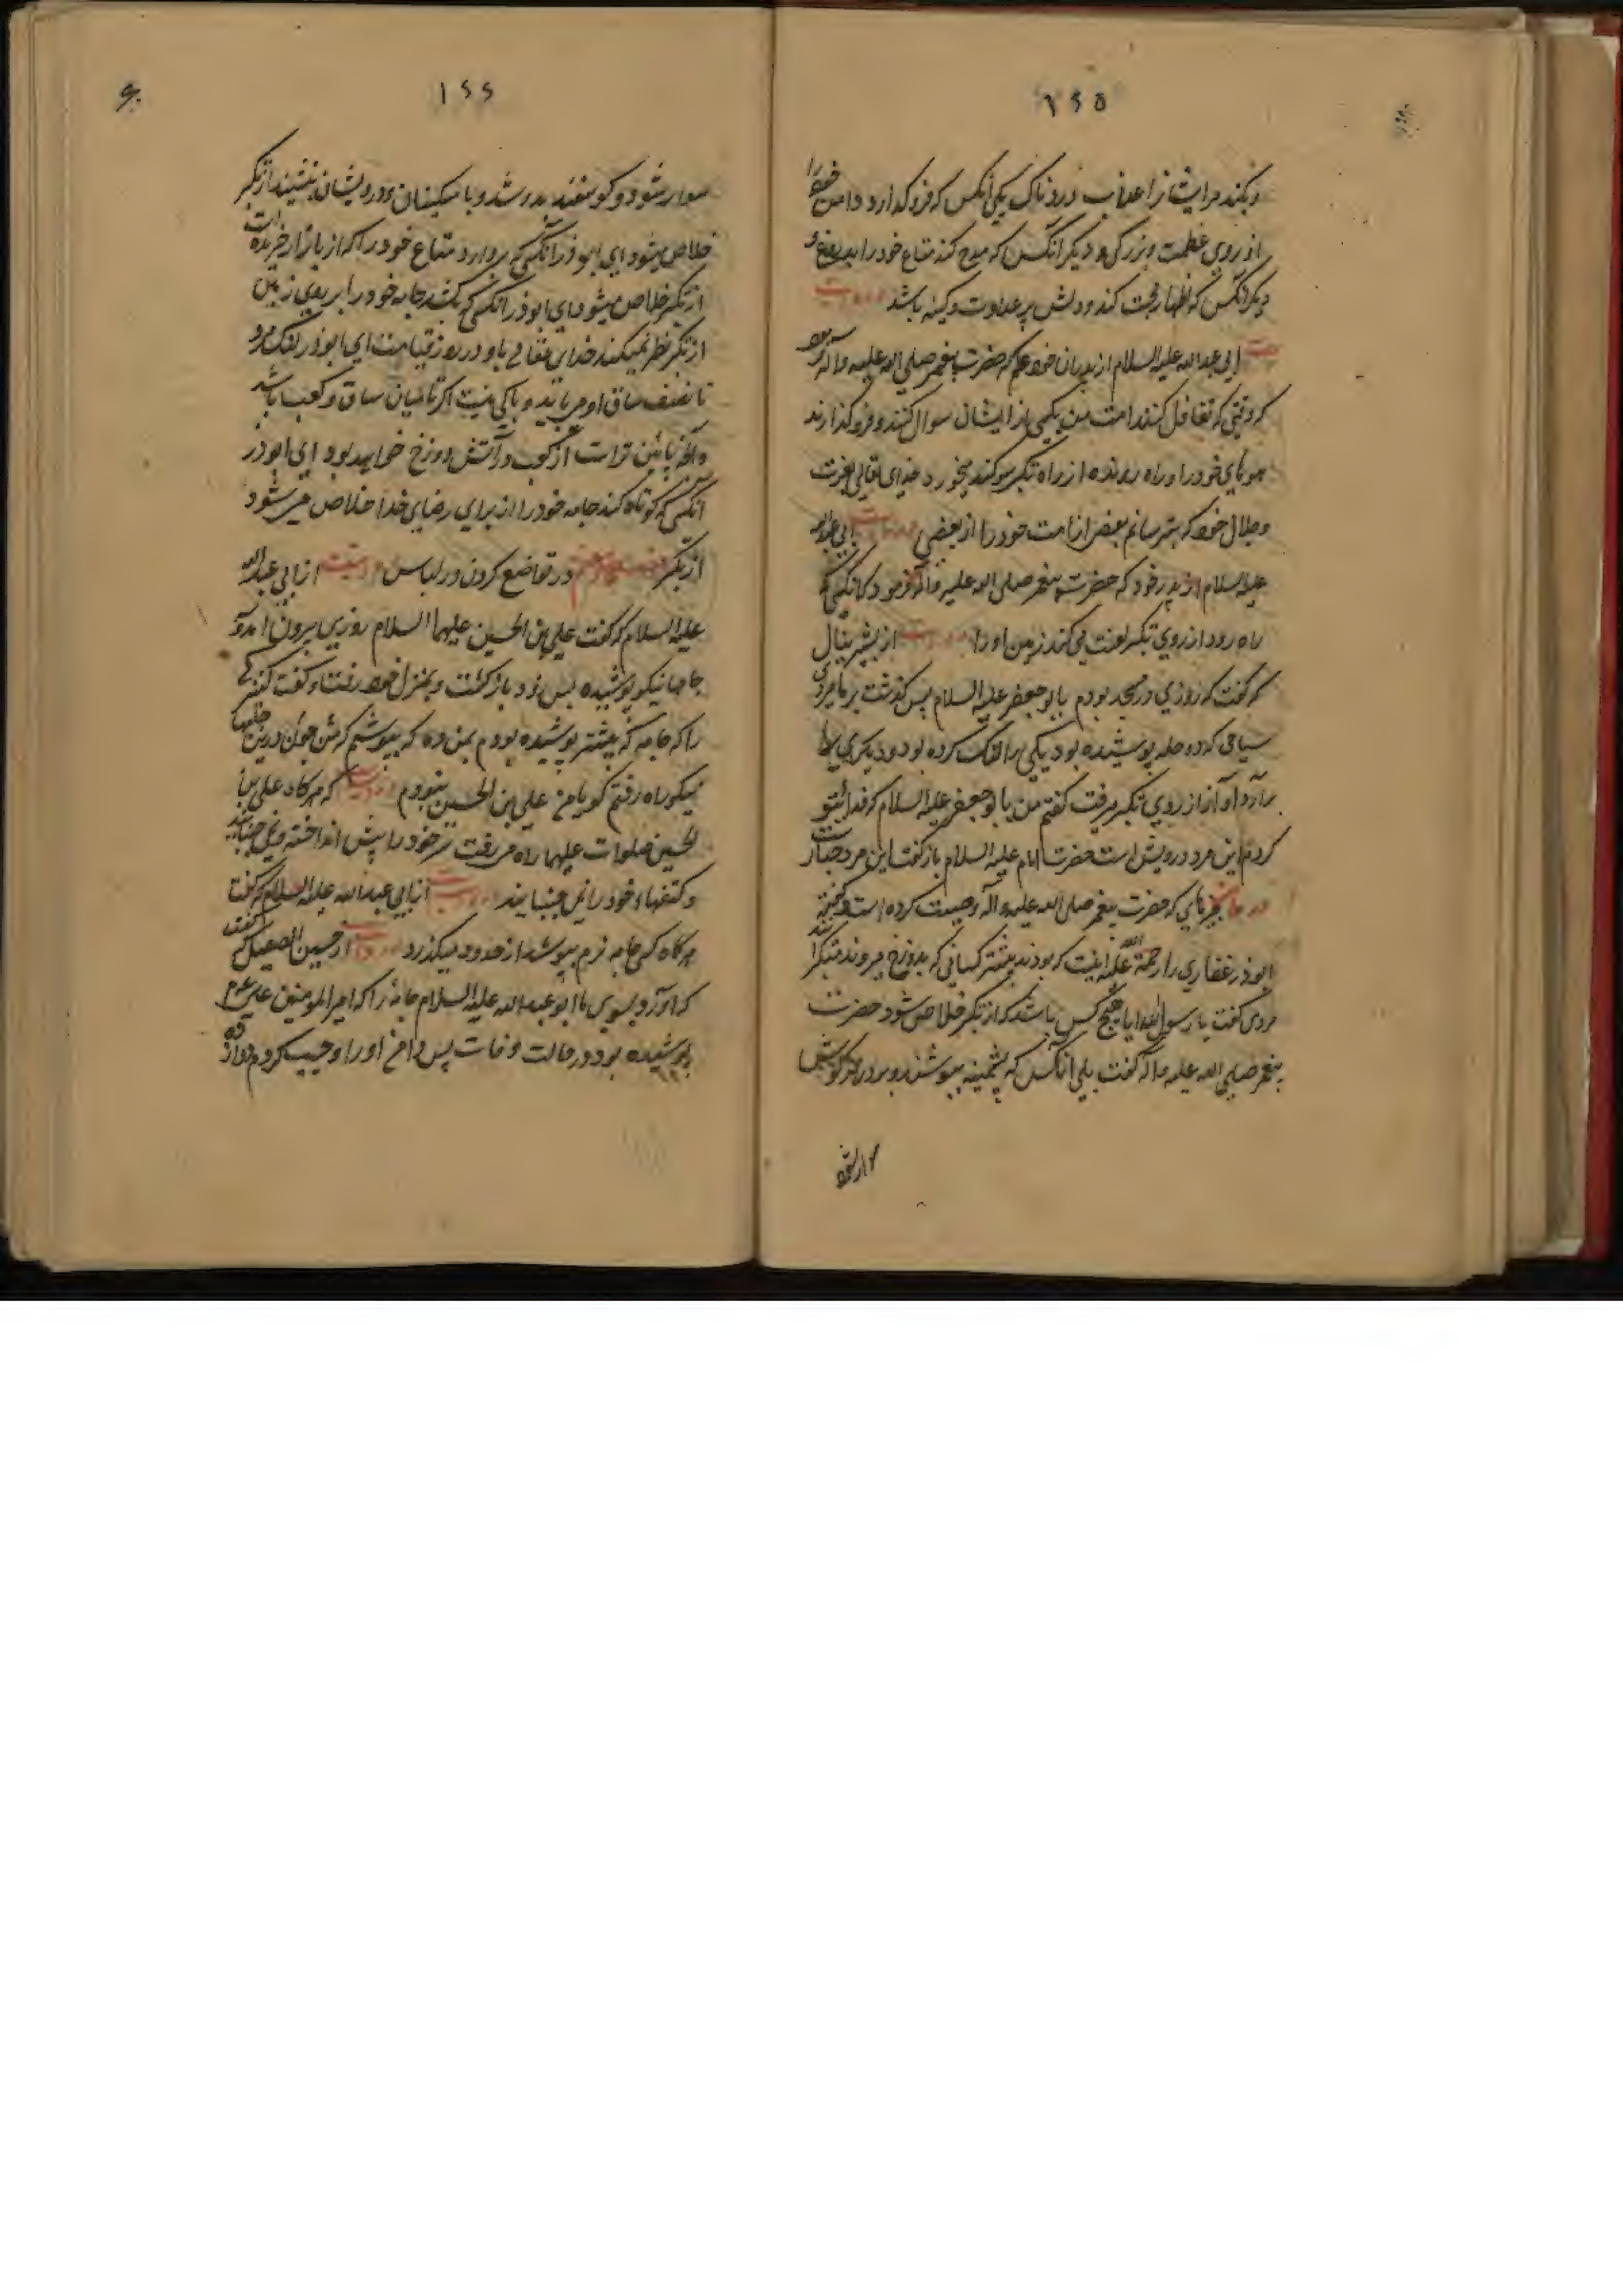 ۱۶۵
و بکند مر ایشانرا عذاب دردناک یکی انکس که فرو کذارد دامن خود را
از روی عظمت و بزرکی و دیکر انکس که مدح کند متاع خود را بدروغ و
دیکر انکس که اظهار محبت کند و دلش پر عداوت و کینه باشد
ابی عبدالله علیه السلام از پدران خود که حضرت پیغمبر صلی الله علیه و آله
که وقتی که تغافل کنند امت من یکی از ایشان سوال کنند و فرو کذارند
موهای خود را و راه روند از راه تکبر سوکند میخورد خدای تعالی بعزت
و جلال خود که بترسانم بعضی از امت خود را از بعضی ابی عبدالله
علیه السلام از پدر خود که حضرت پیغمبر صلی الله علیه و آله فرمود که انکسی که
راه رود از روی تکبر لعنت می کند زمین او را از بشیر نبال
که کفت که روزی در مسجد بودم با ابو جعفر علیه السلام پس کذشت بر ما مردی
سیاهی که دو حله پوشیده بود یکی را لنک کرده بود و دیکری را
و از روی تکبر میرفت کفتم من با ابو جعفر علیه السلام که فدای تو
کردم این مرد درویش است حضرت امام علیه السلام باز کفت این مرد جبار است
که حضرت پیغمبر صلی الله علیه و آله وصیت کرده است
ابوذر غفاری را رحمة الله علیه اینست که بودند بیشتر کسانی که بدوزخ میروند متکبرانند
مردی کفت یا رسول الله ایا هیچ کس باشد که از تکبر خلاص شود حضرت
پیغمبر صلی الله علیه و آله کفت بلی انکس که پشمینه بپوشد و بر درازکوش
۱۶۶
سوار شود و کوسفند بدوشد و با مسکینان و درویشان بنشیند از تکبر
خلاص میشود ای ابوذر انکسی که بردارد متاع خود را که از بازار خریده است
از تکبر خلاص میشود ای ابوذر انکسی که بکشد جامه خود را بر روی زمین
از تکبر نظر نمیکند خدای تعالی باو در روز قیامت ای ابوذر لنک مرد
تا نصف ساق او می باید و باکی نیست اکر تا میان ساق و کعب باشد
و آنچه پائین تر است از کعب در آتش دوزخ خواهد بود ای ابوذر
انکسی که کوتاه کند جامه خود را از برای رضای خدا خلاص می شود
از تکبر در تواضع کردن در لباس از ابی عبدالله
علیه السلام که کفت علی بن الحسین علیهما السلام روزی بیرون امد و
جامها نیکو پوشیده پس زود باز کشت و بمنزل خود رفت و کفت
را که جامه که پیشتر پوشیده بودم بمن ده که بپوشم که من چون درین جامها
نیکو راه رفتم کویا من علی بن الحسین نبودم که هرکاه علی بن
الحسین صلوات علیهما راه می رفت سر خود را پیش انداخته
و کتفهاء خود را نمی جنبانید از ابی عبدالله علیه السلام که کفت
هرکاه کسی جامه نرم بپوشد از حدود میکذرد از حسین الصیقل که کفت
که اورد بسوی ما ابو عبدالله علیه السلام جامهٔ را که امیر المومنین علی
پوشیده بود در حالت وفات پس